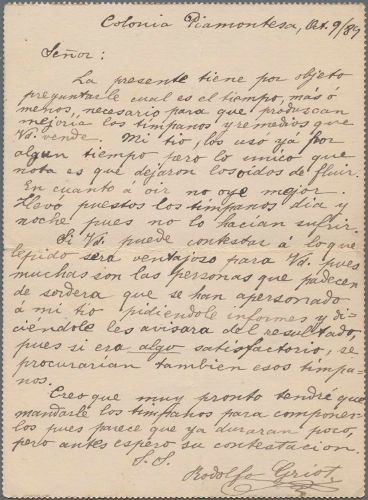 Colonia Piamontesa, Oct. 9/89
Señor:
La presente tiene por objeto
preguntarle cual es el tiempo, más ó
menos, necesario para que produzcan
mejoría los tímpanos y remedios que
Vd. vende. Mi tio, los usó ya por
algun tiempo pero lo unico que
nota es que dejaron los oidos de fluir.
En cuánto á oir no oye mejor.
Llevó puestos los tímpanos día y
noche pues no lo hacían sufrir.
Si Vd. puede contestar á lo que
le pido será ventajoso para Vd. pues
muchas son las personas que padecen
de sordera que se han apersonado
á mi tio pidiendole informes y di-
ciendole les avisara del resultado,
pues si era algo satisfactorio, se
procurarían tambien esos tímpa-
nos.
Creo que muy pronto tendré que
mandarle los tímpanos para componer-
los pues parece que ya duraran poco,
pero antes espero su contestacion.
S. S.
Rodolfo Griot